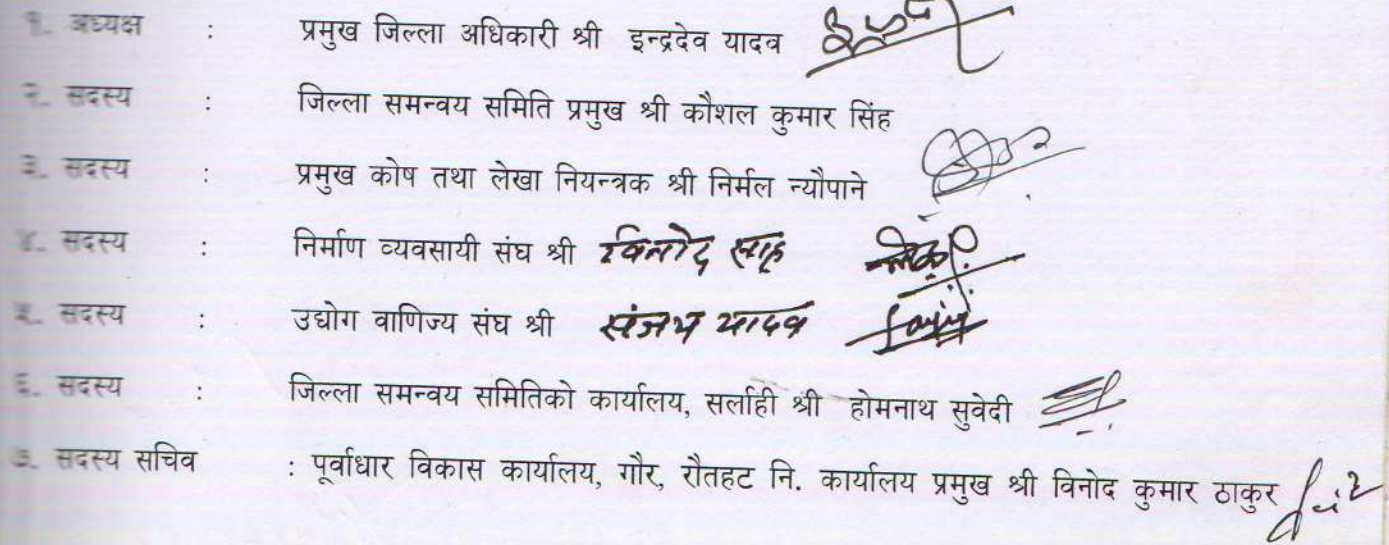 १. अध्यक्ष : प्रमुख जिल्ला अधिकारी श्री इन्द्रदेव यादव
२. सदस्य : जिल्ला समन्वय समिति प्रमुख श्री कौशल कुमार सिंह
३. सदस्य : प्रमुख कोष तथा लेखा नियन्त्रक श्री निर्मल न्यौपाने
४. सदस्य : निर्माण व्यवसायी संघ श्री विनोद साह
५. सदस्य : उद्योग वाणिज्य संघ श्री संजय यादव
६. सदस्य : जिल्ला समन्वय समितिको कार्यालय, सर्लाही श्री होमनाथ सुवेदी
७. सदस्य सचिव : पूर्वाधार विकास कार्यालय, गौर, रौतहट नि. कार्यालय प्रमुख श्री विनोद कुमार ठाकुर